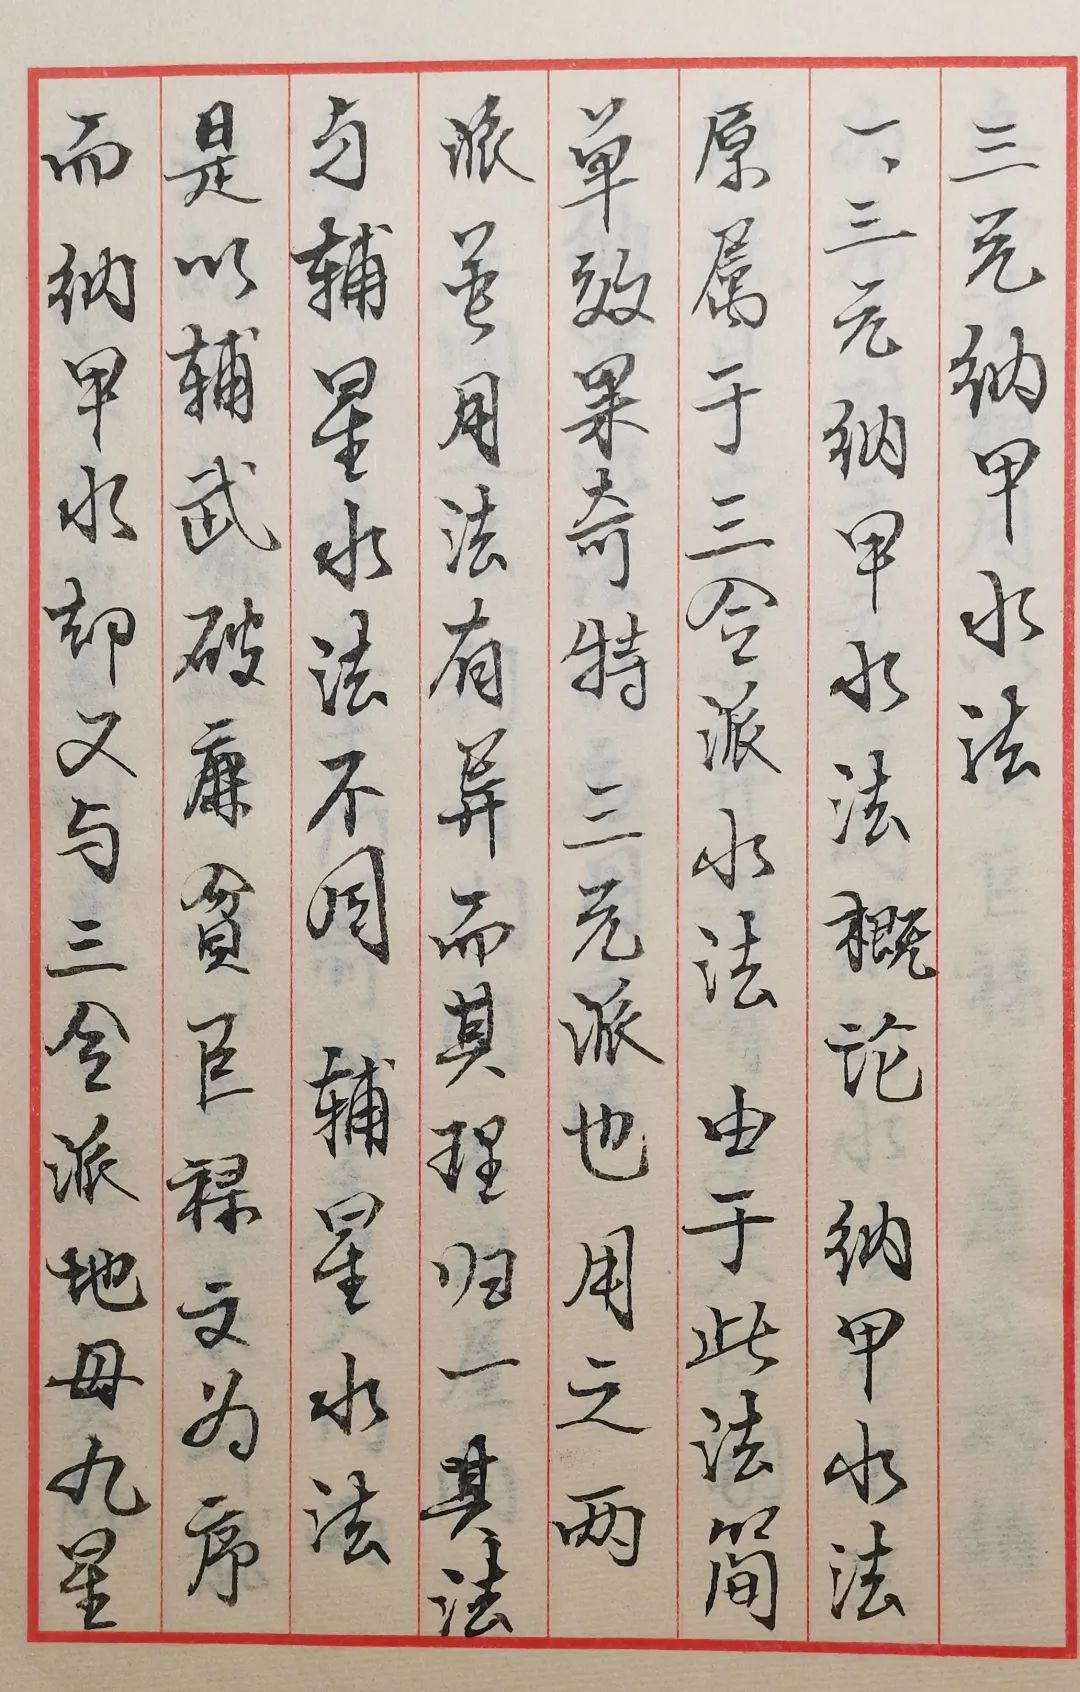 三元纳甲水法
一、三元纳甲水法概论 纳甲水法
原属于三合派水法 由于此法简
单效果奇特 三元派也用之两
派虽用法有异而其理归一其法
与辅星水法不同 辅星水法
是以辅武破廉贪巨禄文为序
而纳甲水却又与三合派地母九星